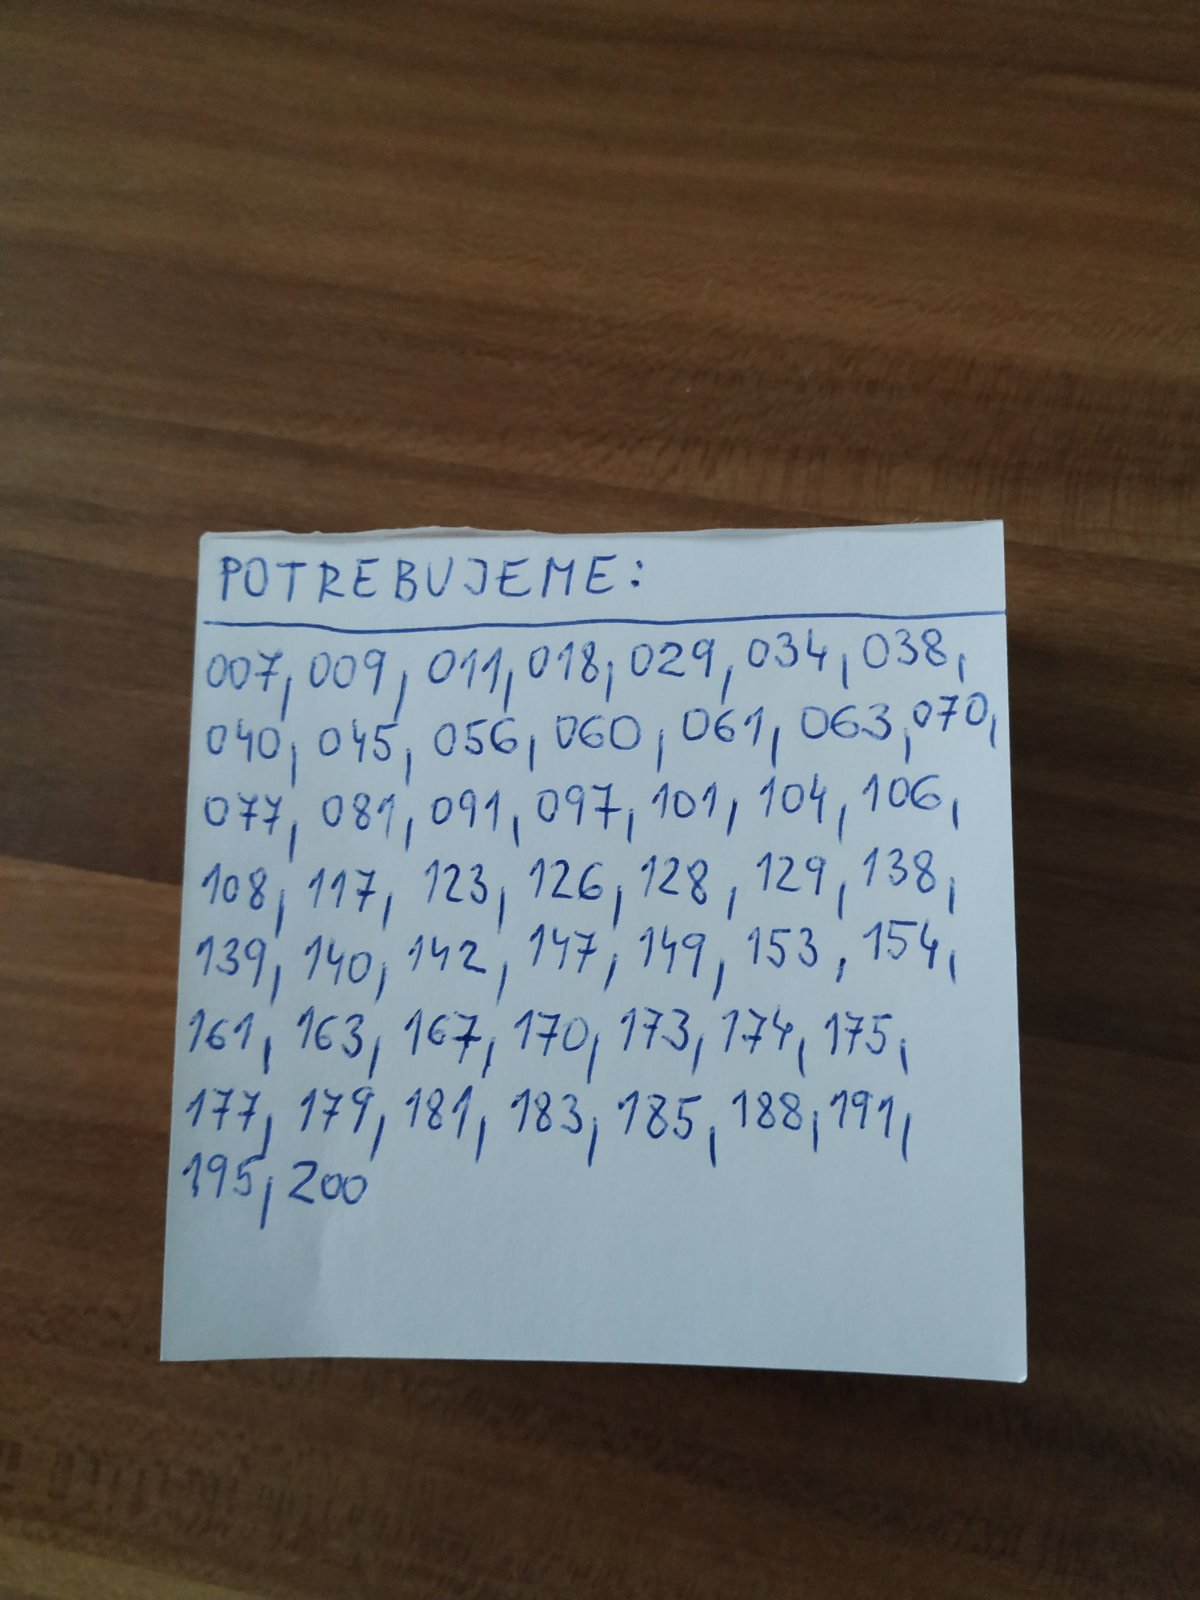 POTREBUJEME:
007, 009, 011, 018, 029, 034, 038,
040, 045, 056, 060, 061, 063, 070,
077, 081, 091, 097, 101, 104, 106,
108, 117, 123, 126, 128, 129, 138,
139, 140, 142, 147, 149, 153, 154,
161, 163, 167, 170, 173, 174, 175,
177, 179, 181, 183, 185, 188, 191,
195, 200